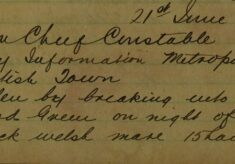 21st June
Chief Constable
Information Metropo
Town
by breaking into
Green on night of
ck welsh mare 15 han